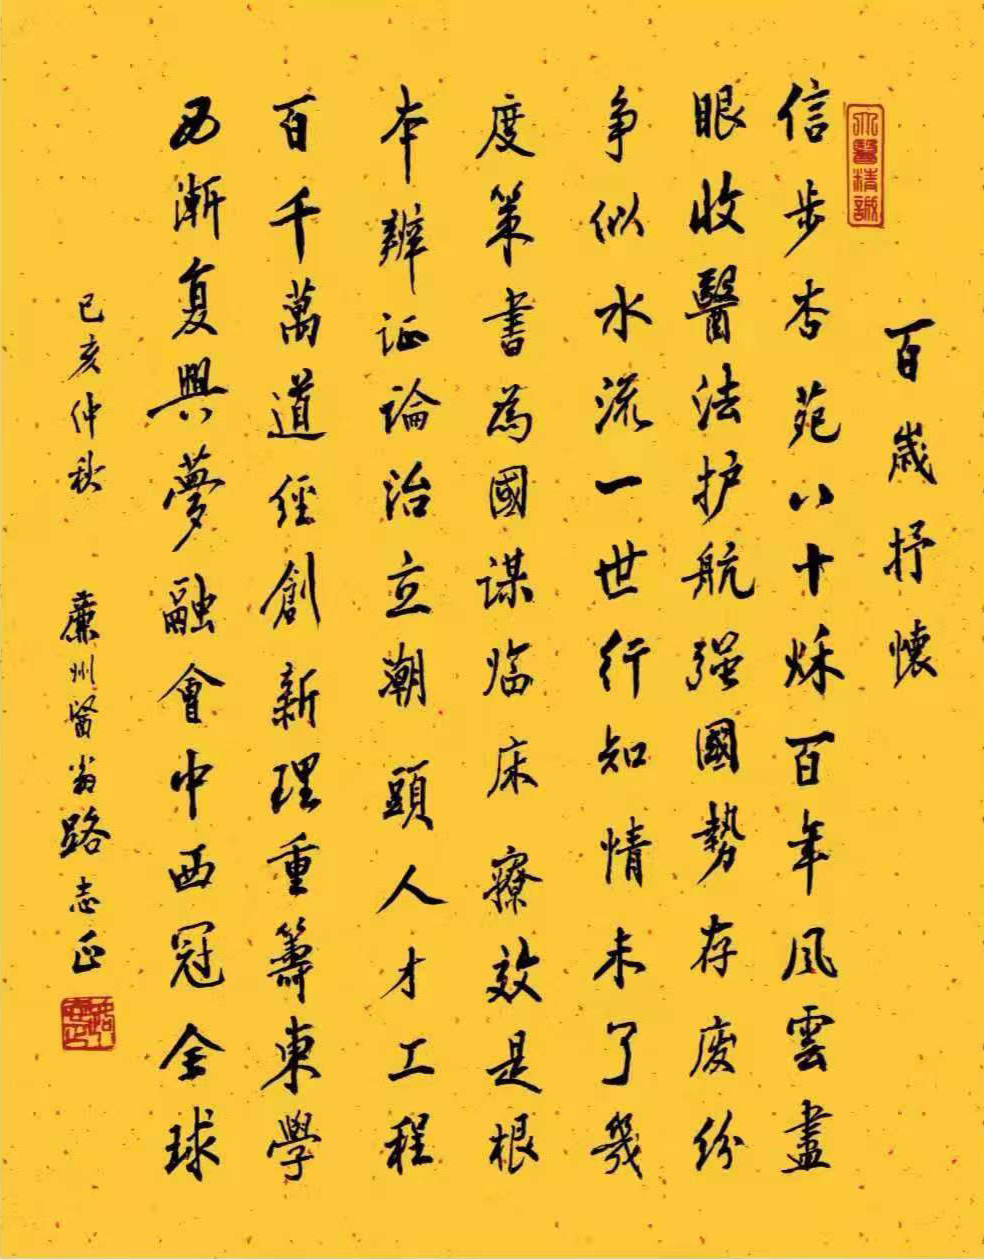 百歲抒懷
大醫精誠
信步杏苑八十秌百年風雲盡
眼收醫法护航强國勢存废纷
争似水流一世行知情未了幾
度策書為國谋临床療效是根
本辨证論治立潮頭人才工程
百千萬道經創新理重籌東學
西漸复興夢融會中西冠全球
己亥仲秋 廉州醫翁路志正